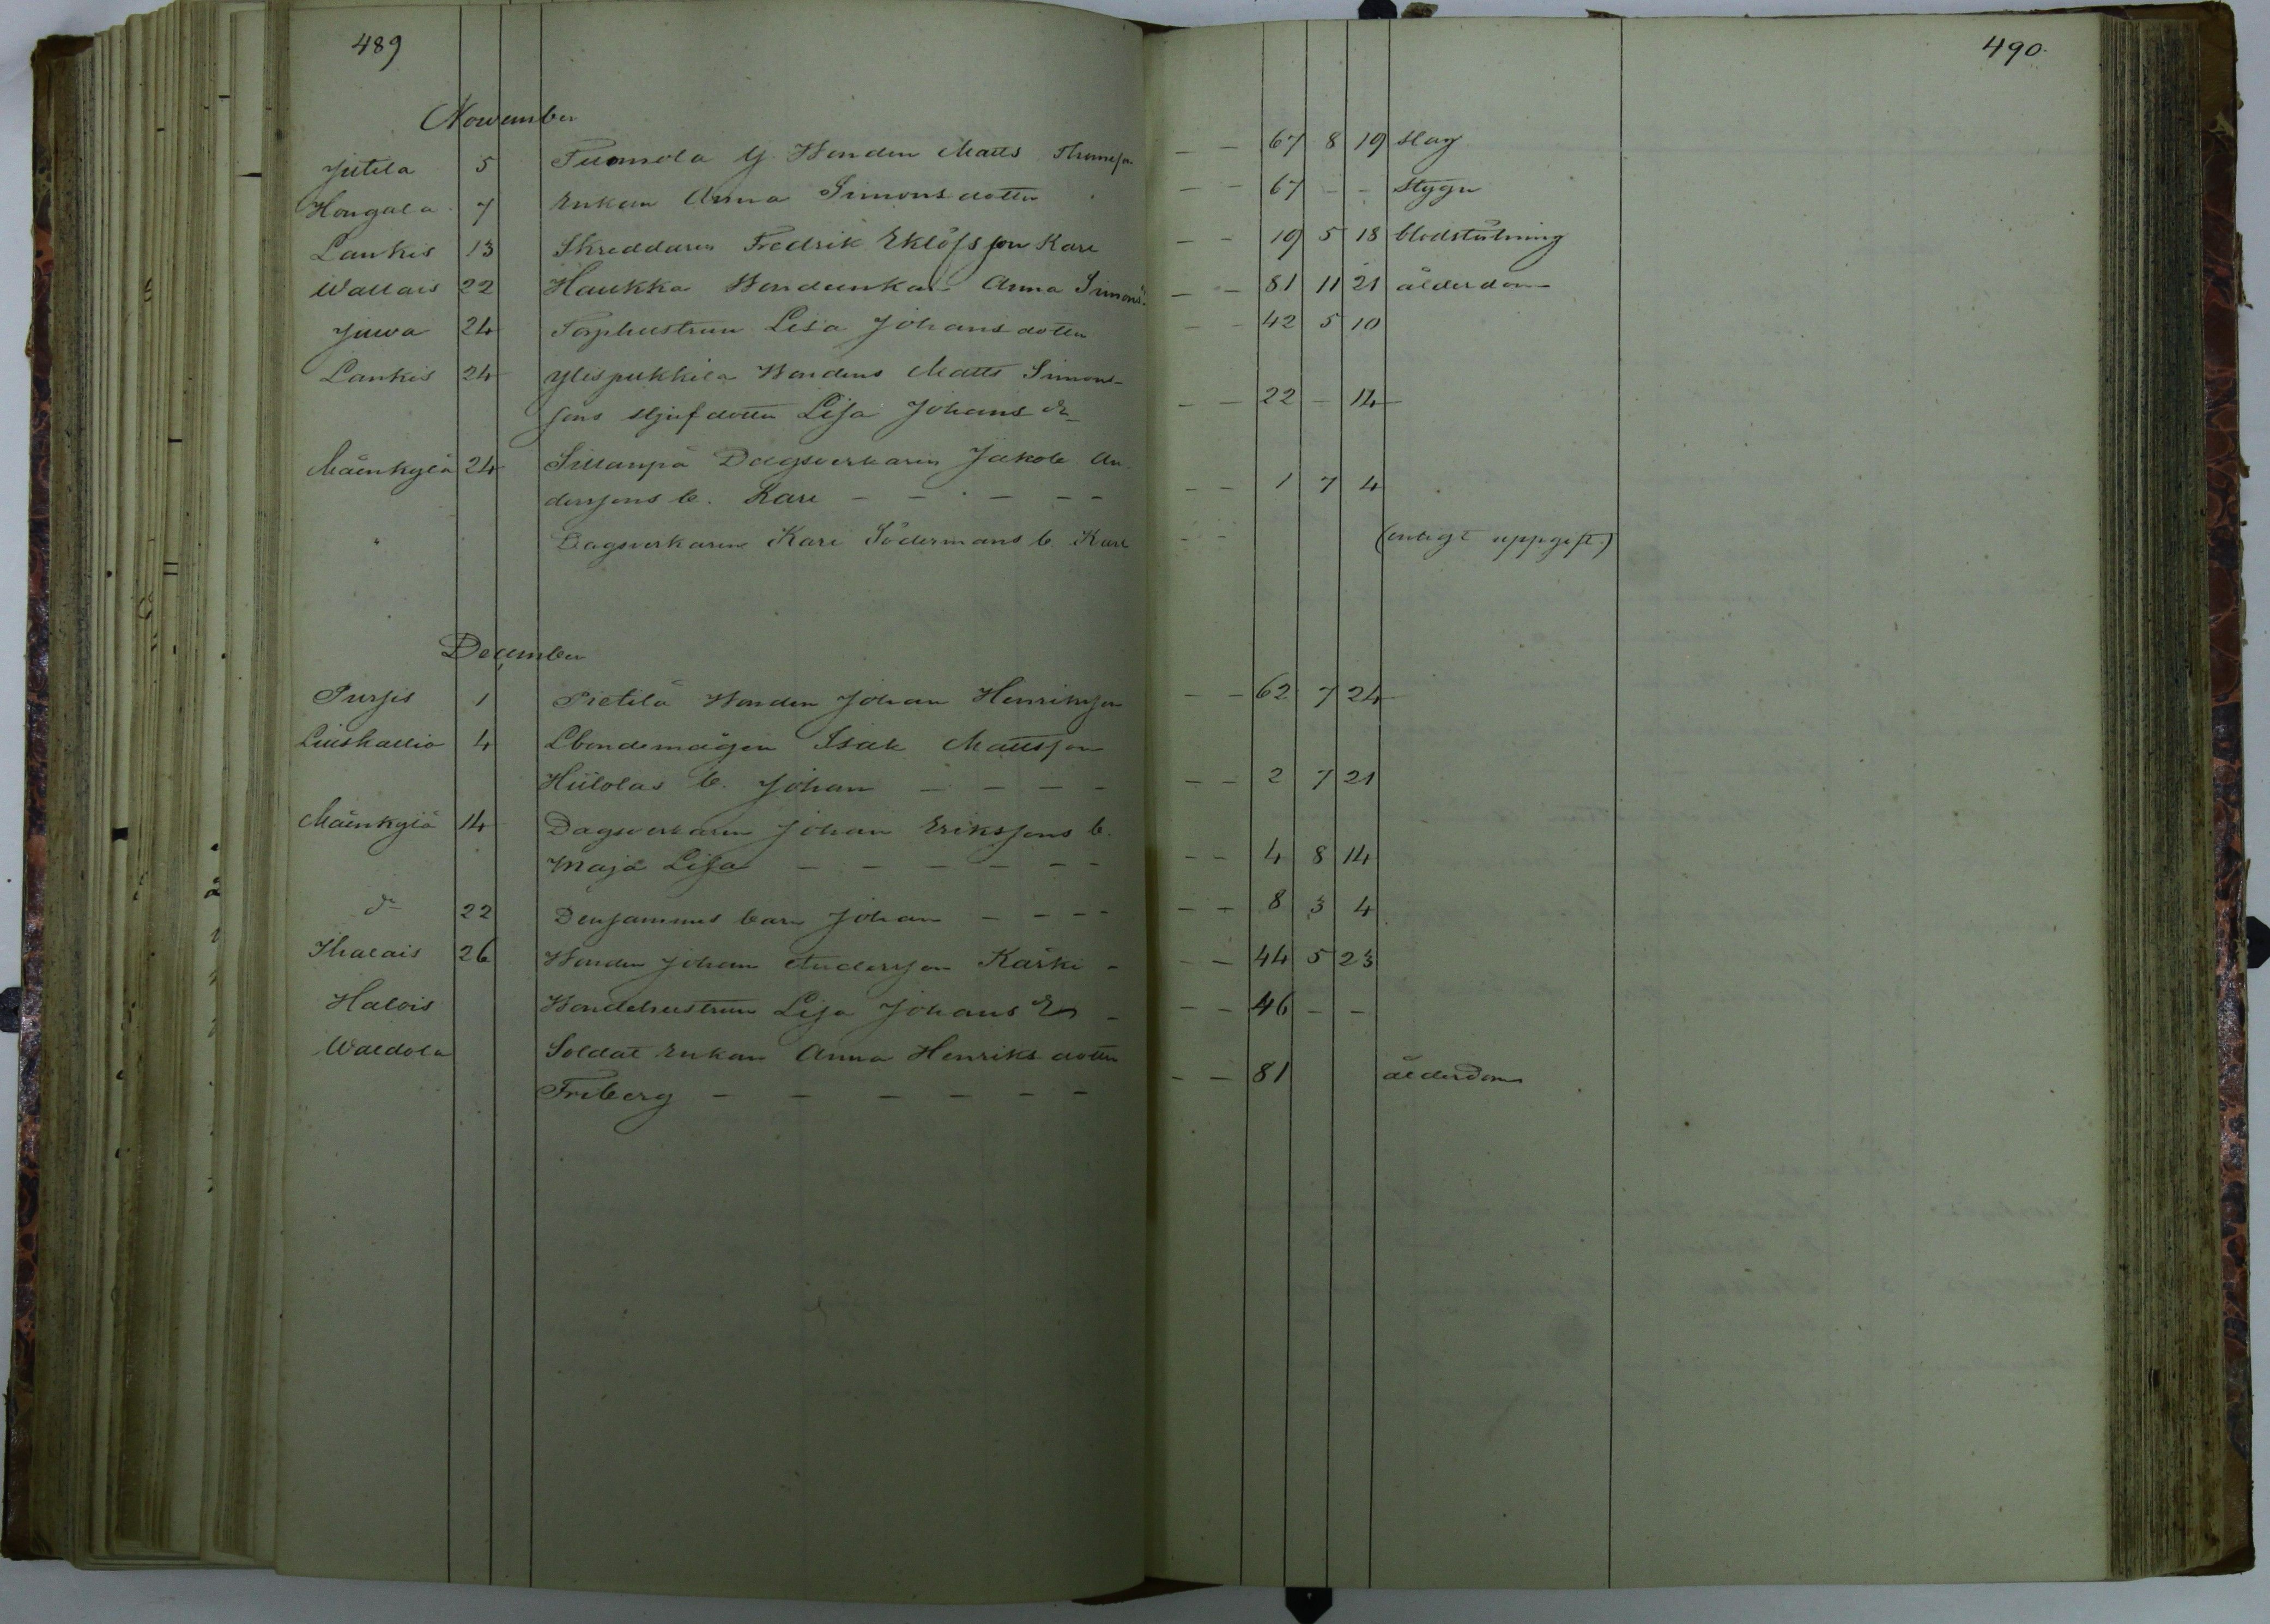 489
490.
November
Jutila 5 Tuomola G. Bonden Matts Thomeson — — 67 8 19 slag
Hongala 7 Enkan Anna Simonsdotter — — 67 — — stygn
Lankis 13 Skreddaren Fredrik Eklöfs son Karl — — 19 5 18 blodstörtning
Wallais 22 Haukka Bondeenkan Anna Simons — — 81 11 21 ålderdom
Juwa 24 Torphustrun Lisa Johansdotter — — 42 5 10
Lankis 24 Ylispukkila Bondens Matts Simons-
sons stjufdotter Lisa Johans dr — — 22 — 14
Mäenkylä 24 Sillanpä Dagsverkaren Jakob An
derssons b. Karl — — — — — — 1 7 4
" Dagsverkaren Karl Södermans b. Karl — — (enligt uppgift.)
December
Pursis 1 Pietilä Bonden Johan Henriksson — — 62 7 24
Liuskallio 4 Lbondemågen Isak Mattsson
Hiilolas b. Johan — — — — — — 2 7 21
Mäenkylä 14 Dagsverkaren Johan Erikssons b.
Maja Lisa — — — — — — — — 4 8 14
do 22 Densammes barn Johan — — — — — — 8 3 4
Thalais 26 Bonden Johan Andersson Kärki — — — 44 5 23
Halois Bondehustrun Lisa Johans Dr — — — 46 — —
Waldola Soldat Enkan Anna Henriksdotter
Friberg — — — — — — — — 81 ålderdom